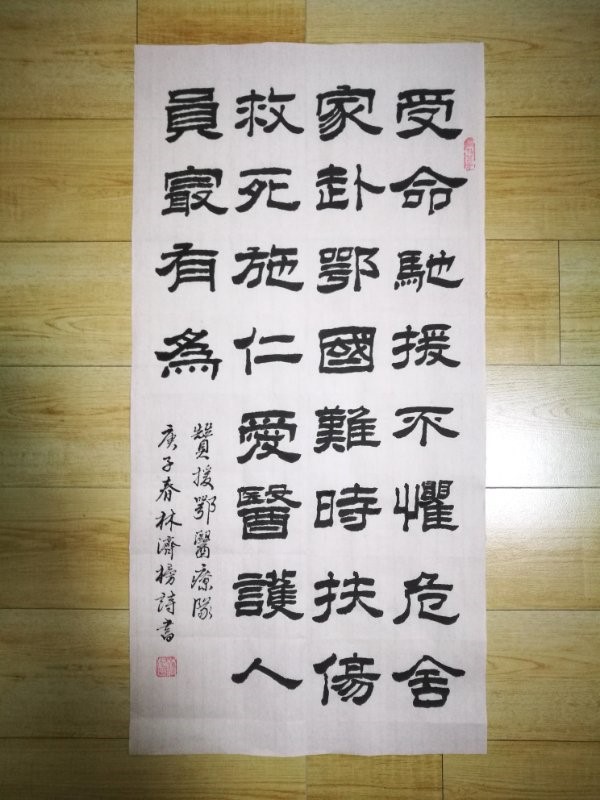 受命馳援不懼危舍
家赴鄂國難時扶傷
救死施仁愛醫護人
員最有為
贊援鄂醫療隊
庚子春林濟榜詩書